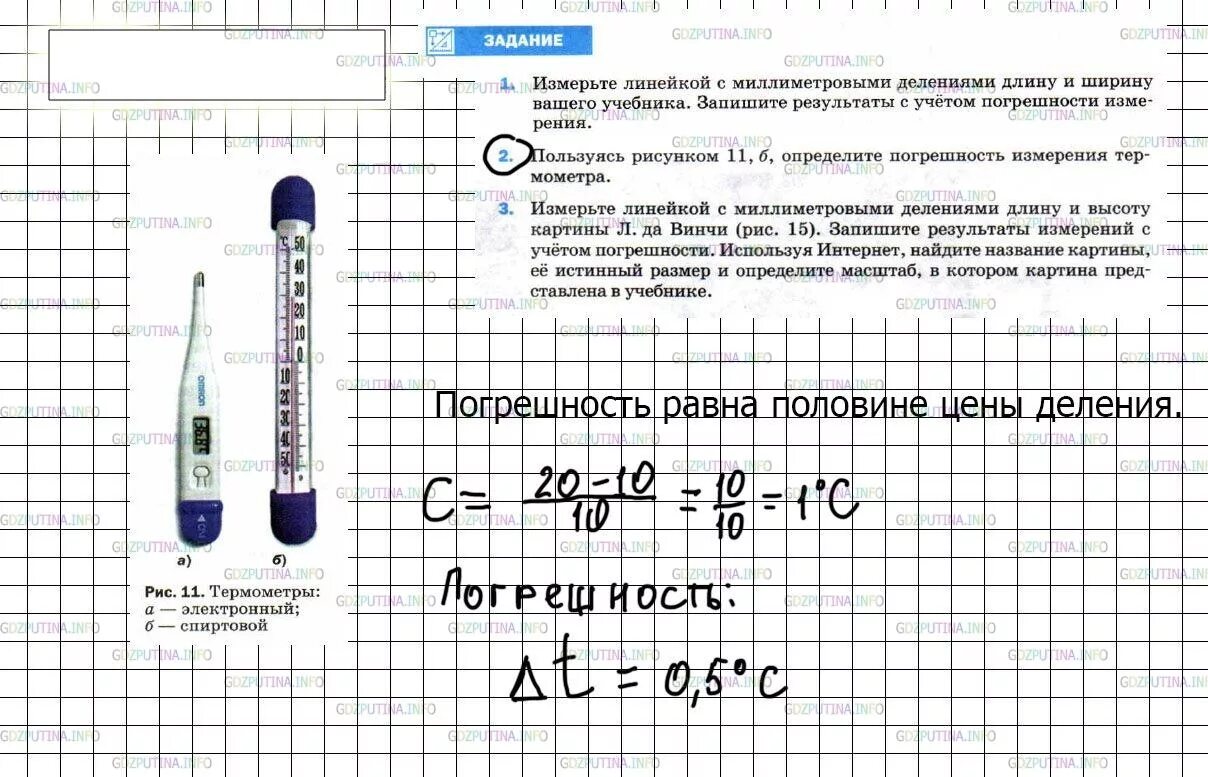 ЗАДАНИЕ
1. Измерьте линейкой с миллиметровыми делениями длину и ширину
вашего учебника. Запишите результаты с учётом погрешности изме-
рения.
2. Пользуясь рисунком 11, б, определите погрешность измерения тер-
мометра.
3. Измерьте линейкой с миллиметровыми делениями длину и высоту
картины Л. да Винчи (рис. 15). Запишите результаты измерений с
учётом погрешности. Используя Интернет, найдите название картины,
её истинный размер и определите масштаб, в котором картина пред-
ставлена в учебнике.
°C
50
40
30
20
10
0
10
20
30
40
50
OMRON
а) б)
Рис. 11. Термометры:
а — электронный;
б — спиртовой
Погрешность равна половине цены деления.
C = (20 - 10)/10 = 10/10 = 1°C
Погрешность:
Δt = 0,5°C
GDZPUTINA.INFO